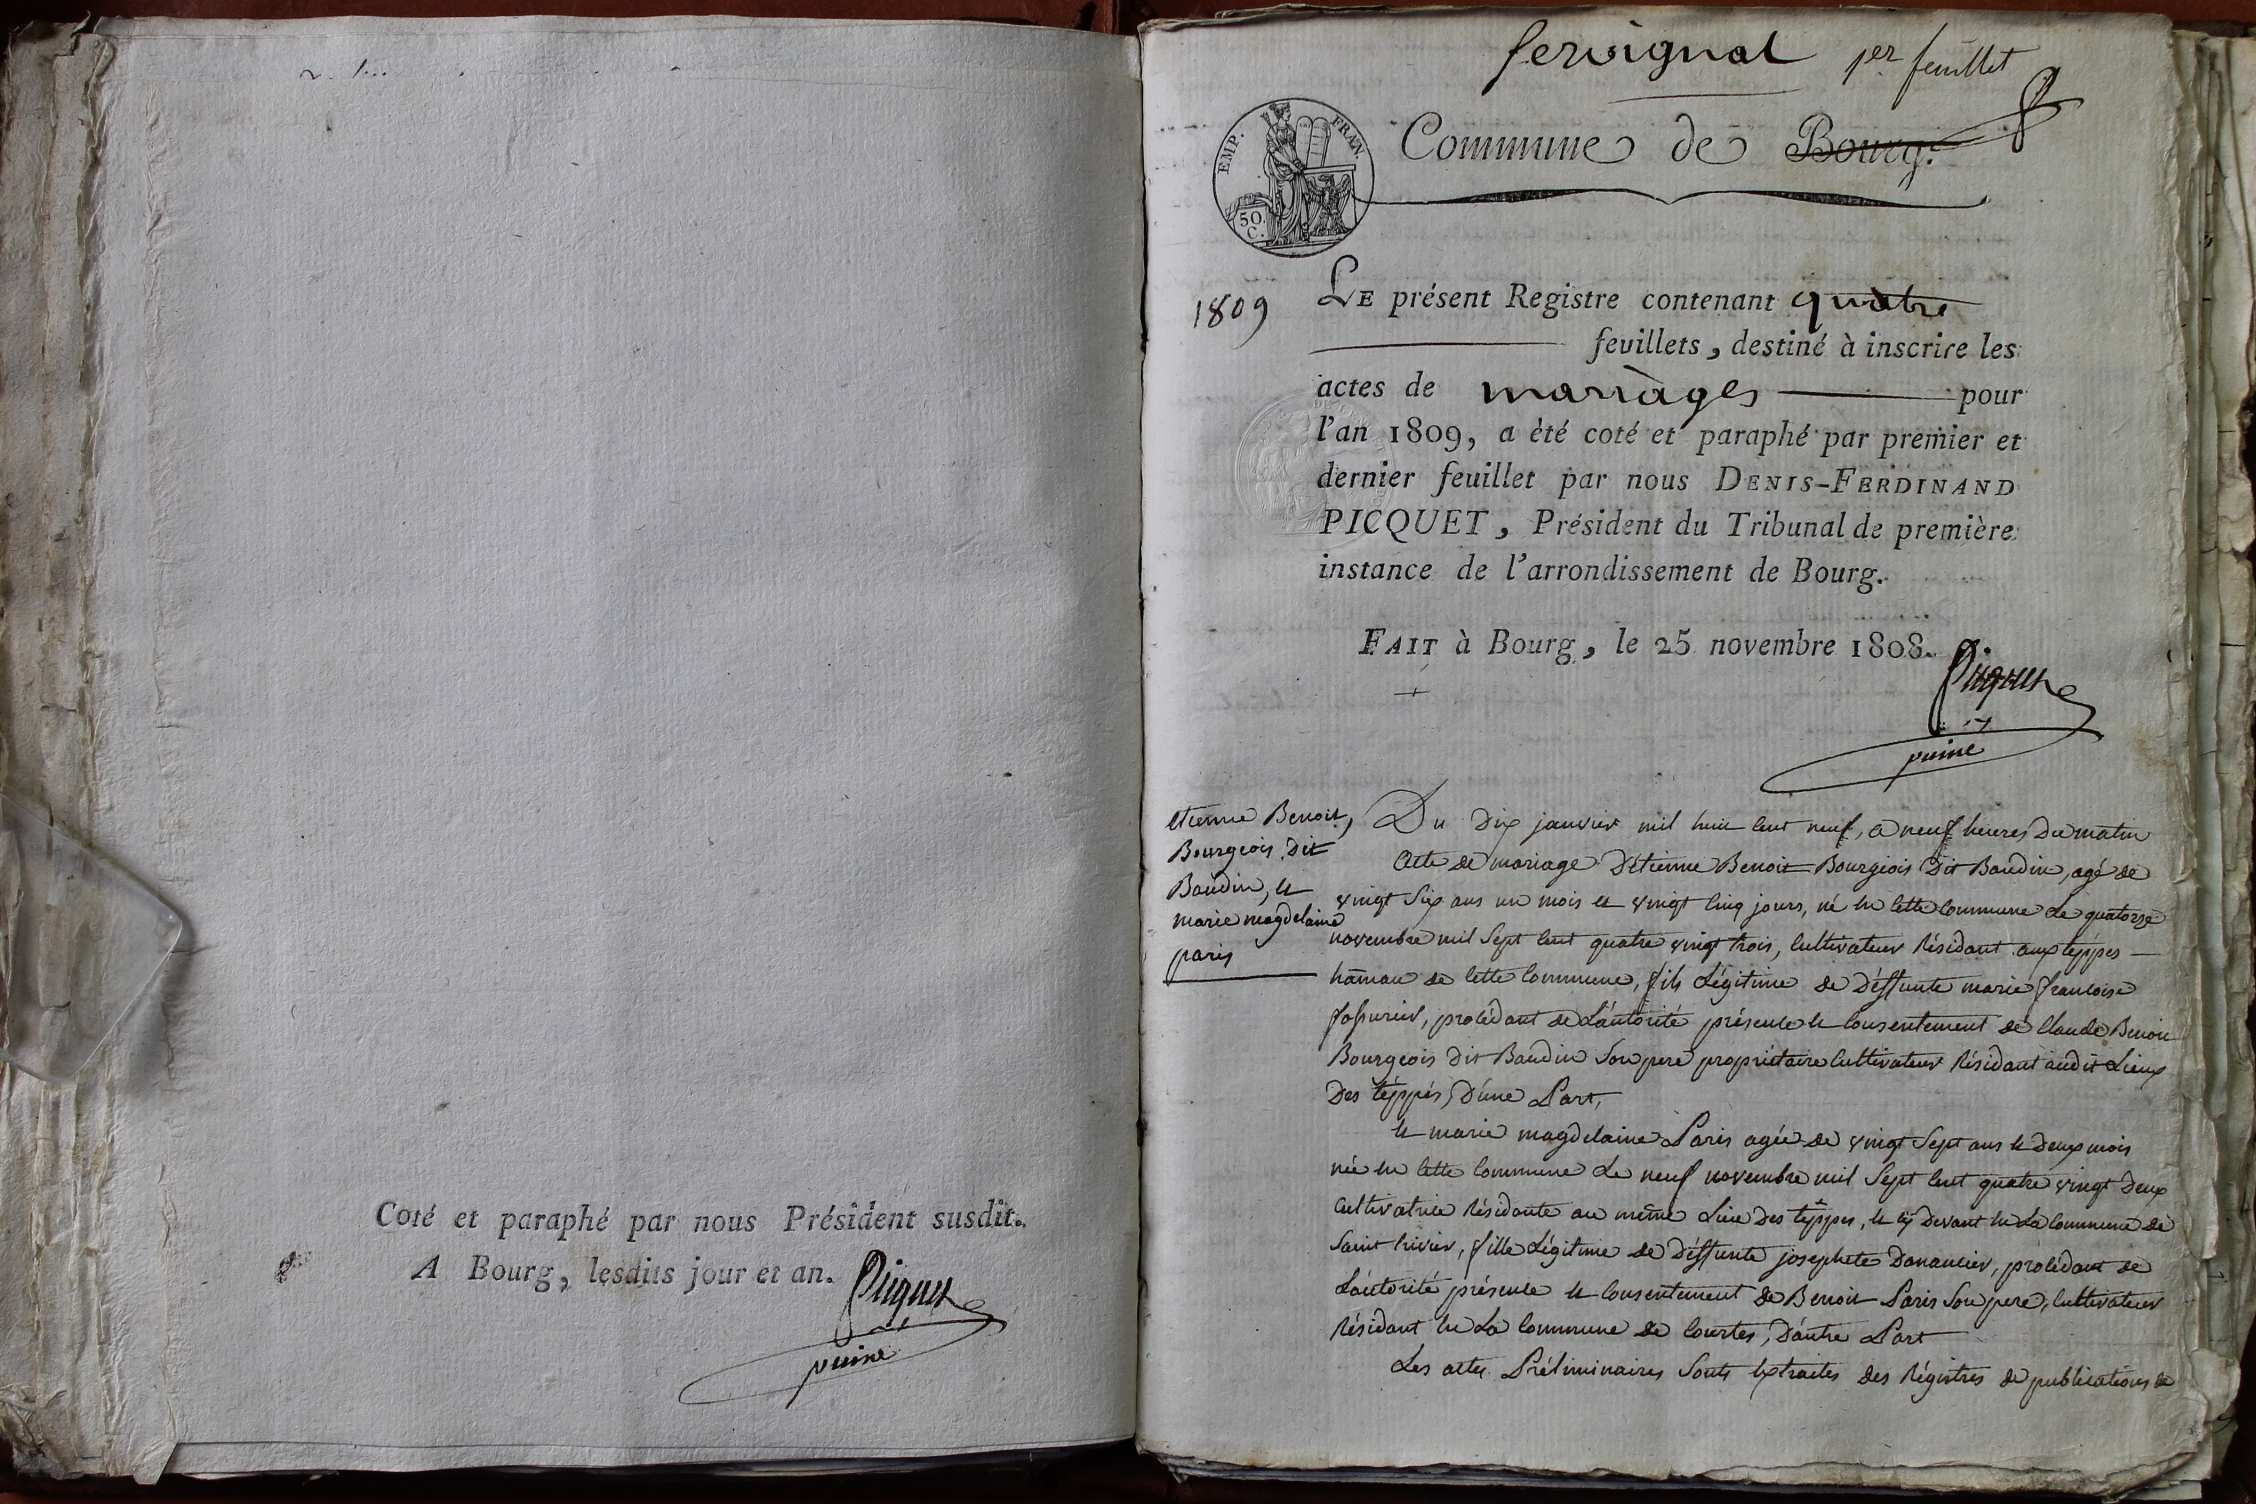 Coté et paraphé par nous Président susdit.
A Bourg, lesdits jour et an.
Picquet
puiné
servignat 1er feuillet
EMP. FRAN.
50 C.
Commune de Bourg.
1809
LE présent Registre contenant quatre
feuillets, destiné à inscrire les
actes de mariages pour
l'an 1809, a èté coté et paraphé par premier et
dernier feuillet par nous DENIS-FERDINAND
PICQUET, Président du Tribunal de première
instance de l'arrondissement de Bourg.
FAIT à Bourg, le 25 novembre 1808.
Picquet
puiné
etienne Benoit,
Bourgeois dit
Baudin, et
marie magdelaine
paris
Du dix janvier mil huit cent neuf, a neuf heures du matin
acte de mariage d'étienne Benoit Bourgeois dit Baudin, agé de
vingt six ans un mois et vingt cinq jours, né en cette commune le quatorze
novembre mil sept cent quatre vingt trois, cultivateur résidant aux téppes
hamau de cette commune, fils légitime de déffunte marie francoise
procédant de l'autorité présence et consentement de claude Benoit
Bourgeois dit Baudin son pere propriétaire cultivateur résidant audit lieux
des téppés, d'une part,
et marie magdelaine Paris agée de vingt sept ans et deux mois
née en cette commune le neuf novembre mil sept cent quatre vingt deux
cultivatrice résidante au même lieu des téppes, et cy devant en la commune de
saint trivier, fille légitime de déffunte josephete Donancier, procédant de
l'autorité présence et consentement de Benoit Paris son pere, cultivateur
résidant en la commune de courtes, d'autre part
Les actes préliminaires sonts extraites des régistres de publications de